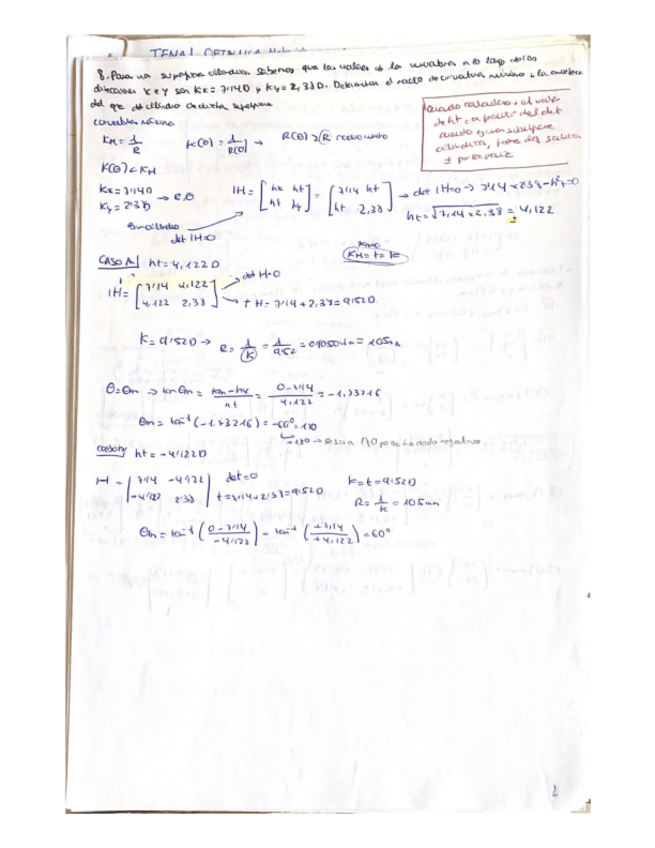 TEMA 1 OPTICA
8. Para una superficie cilindrica sabemos que los valores de la curvatura a lo largo de las
direcciones x e y son Kx = 7,14D y Ky = 2,38D. Determinar el radio de curvatura mínimo y la
del eje del cilindro de dicha superficie
curvatura máxima
KM = 1/R K(θ) = 1/R(θ) → R(θ) ≥ R
K(θ) < KM
Cuando calculamos el valor
de ht a partir del det
cuando es una superficie
cilindrica, tiene dos soluciones
± por la raiz
Kx = 7,14D
Ky = 2,38D → R, θ
IH = [hx ht ht hy] = [7,14 ht ht 2,38] → det IH=0 → 7,14 x 2,38 - h²t = 0
ht = √7,14 x 2,38 = ± 4,122
Es un cilindro
det IH=0
CASO A ht = 4,122D
KM = t = K
IH = [7,14 4,122 4,122 2,38] → det H=0
→ t H = 7,14 + 2,38 = 9,52D
K = 9,52D → R = 1/K = 1/9,52 = 0,1050m = 105mm
θ = θm → tan θm = tm - hx / ht = 0 - 7,14 / 4,122 = -1,73216
θm = tan⁻¹ (-1,73216) = -60° = 120
+180 → se suma 180 porque ha dado negativo
caso B ht = -4,122D
H = | 7,14 -4,122 -4,122 2,38 | det=0
t = 7,14 + 2,38 = 9,52D
K = t = 9,52D
R = 1/K = 105mm
θm = tan⁻¹ (0 - 7,14 / -4,122) = tan⁻¹ (+7,14 / +4,122) = 60°
2